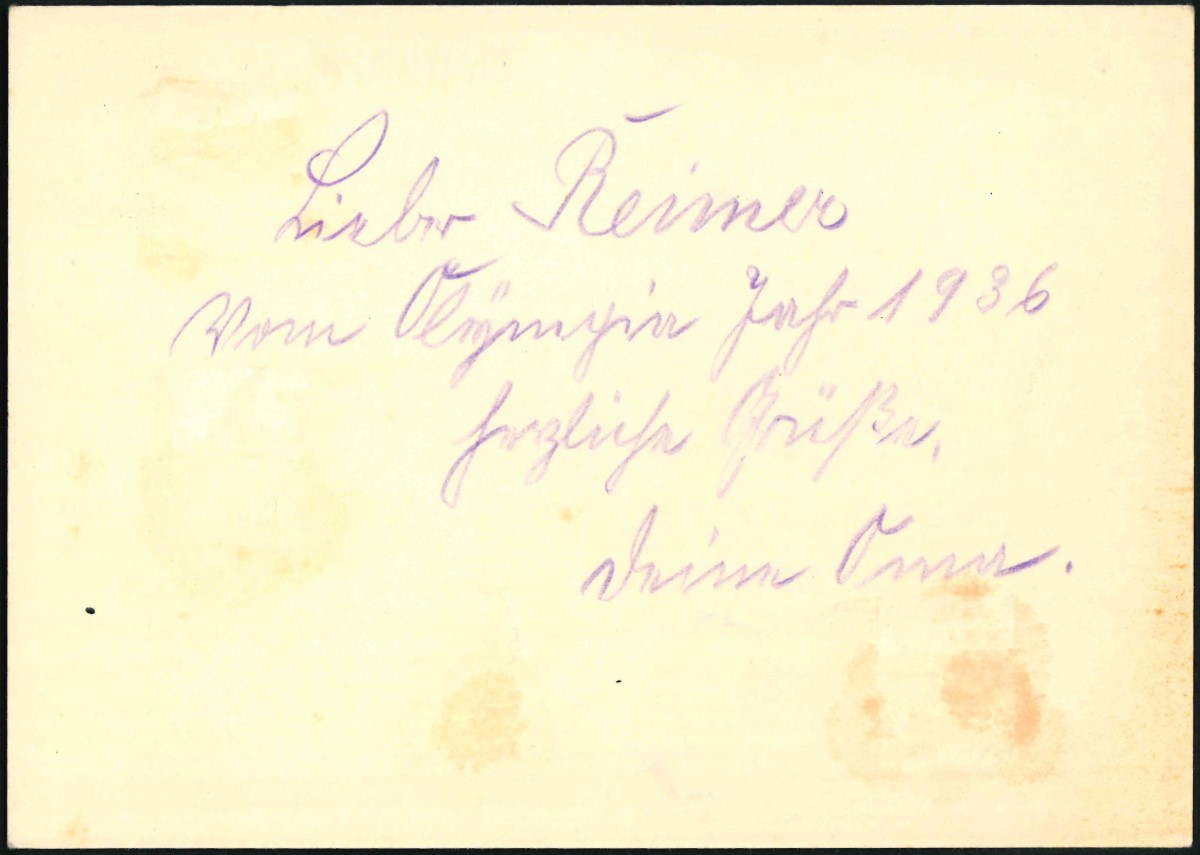 Lieber Reimer
Vom Olÿmpia Jahr 1936
herzliche Grüße,
Deine Oma.